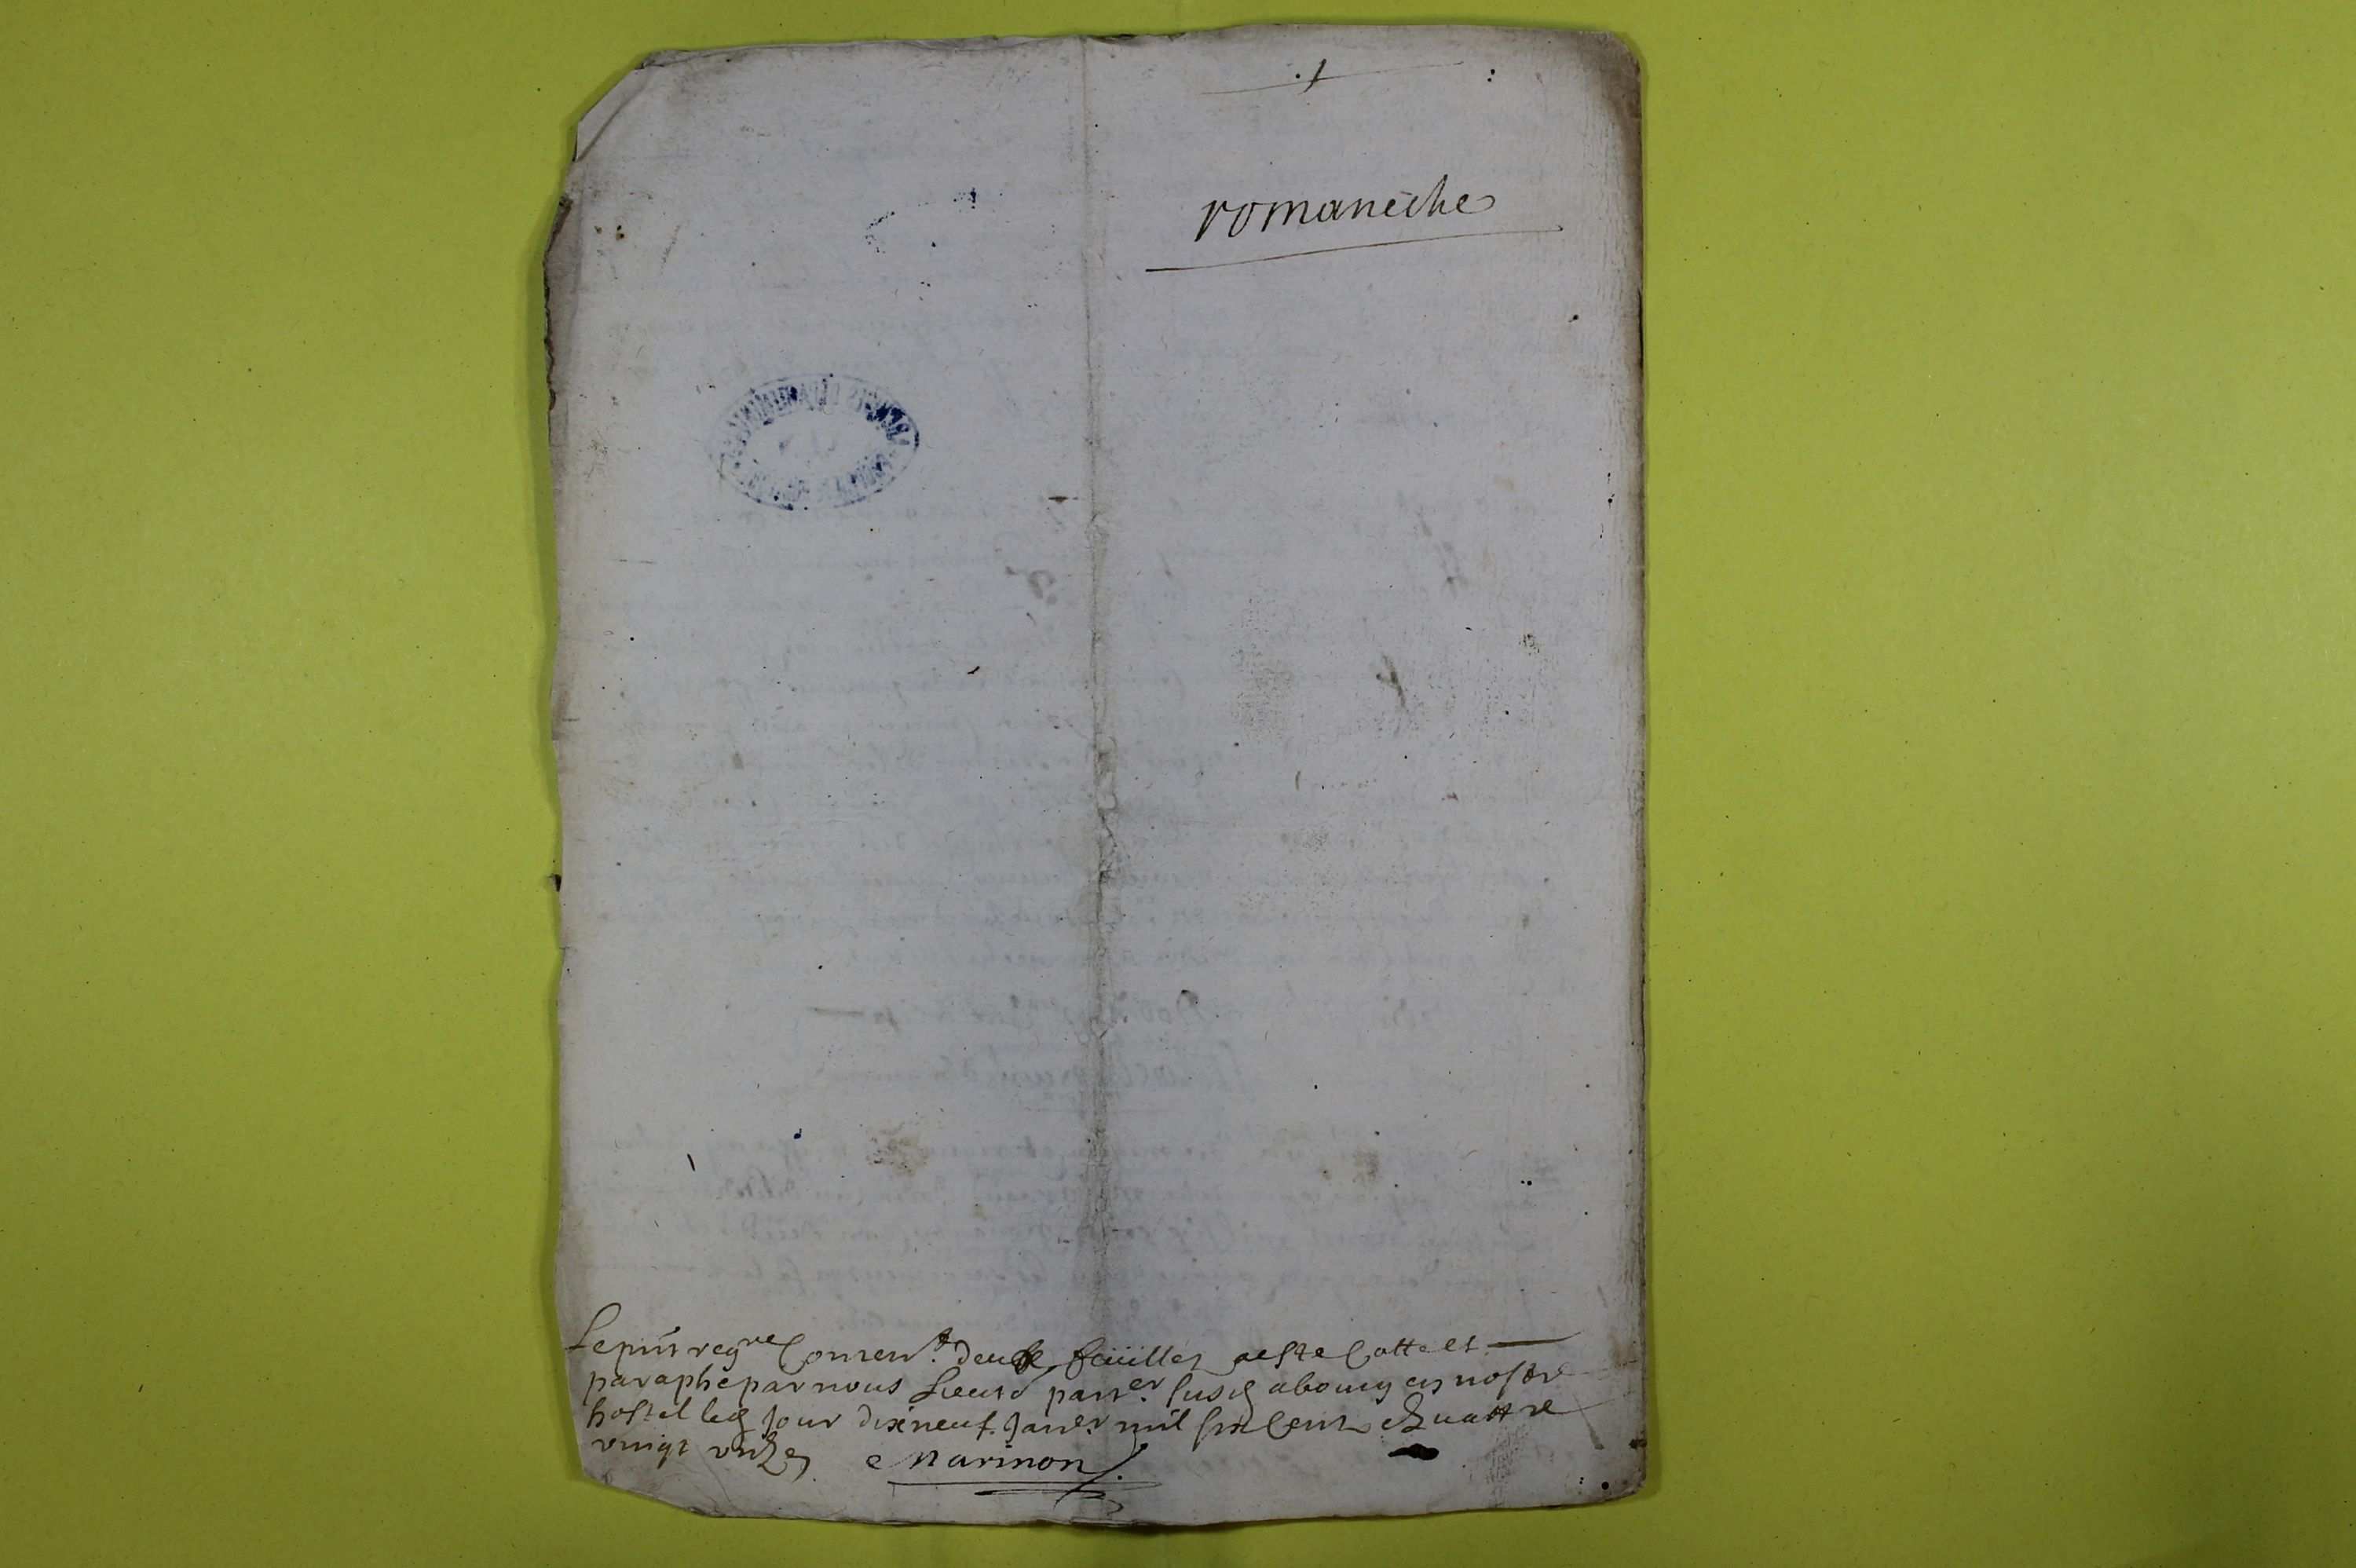 romaneche
Le pnt regre Conten.t deuxe feüilles aesté Cotté et
paraphé par nous Lieut par.er susd abourg en nostre
hostel led Jour dixneuf. Janer. mil six Cent Quattre
vingt unze
Marinon